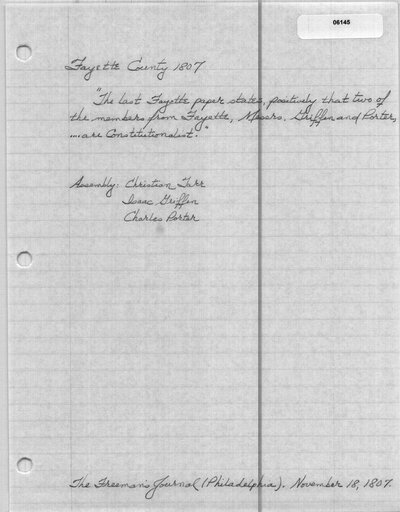 06145
Fayette County 1807
"The last Fayette paper states, positively that two of
the members from Fayette, Messrs. Griffin and Porter,
....are Constitutionalist."
Assembly: Christian Tarr
Isaac Griffin
Charles Porter
The Freeman's Journal (Philadelphia). November 18, 1807.